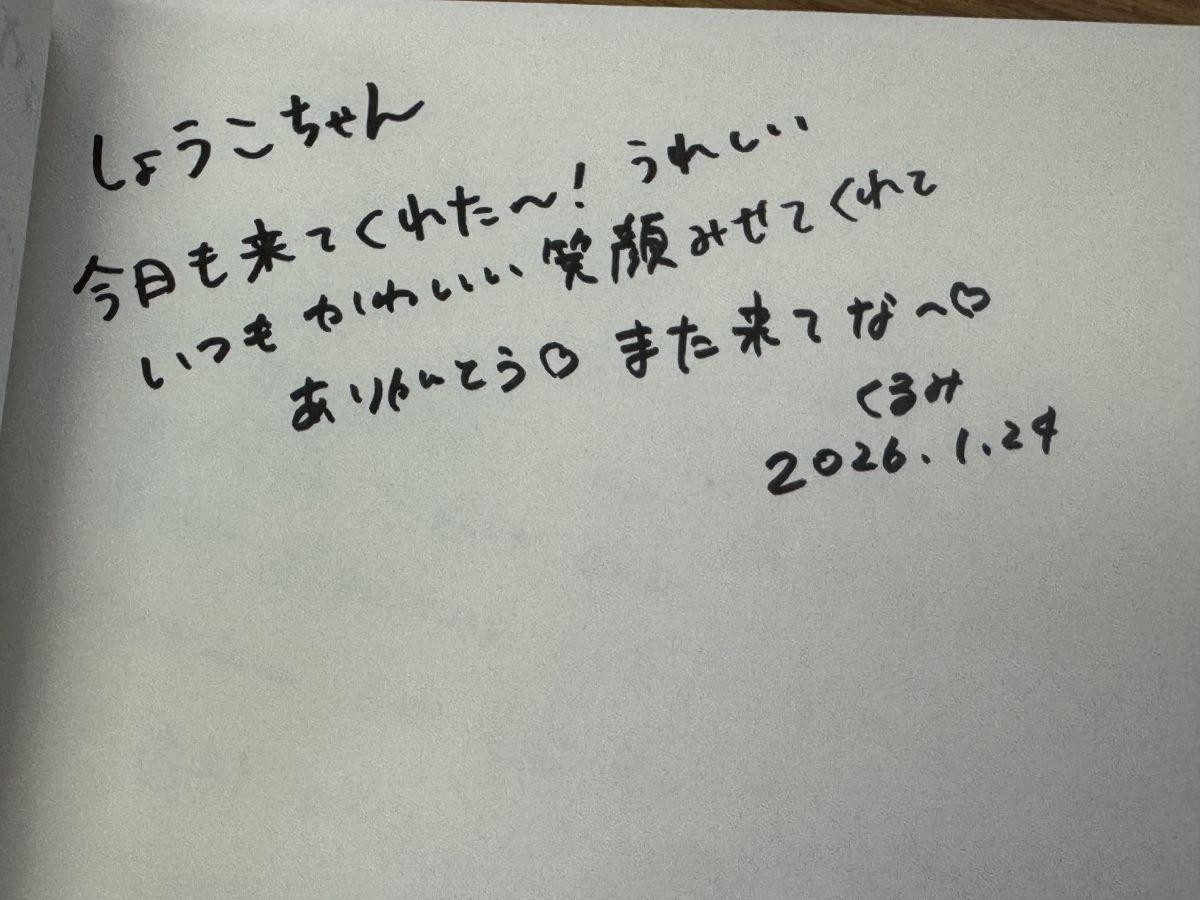 しょうこちゃん
今日も来てくれた〜! うれしい
いつも かわいい笑顔みせてくれて
ありがとう♡ また来てな〜♡
くるみ
2026.1.24